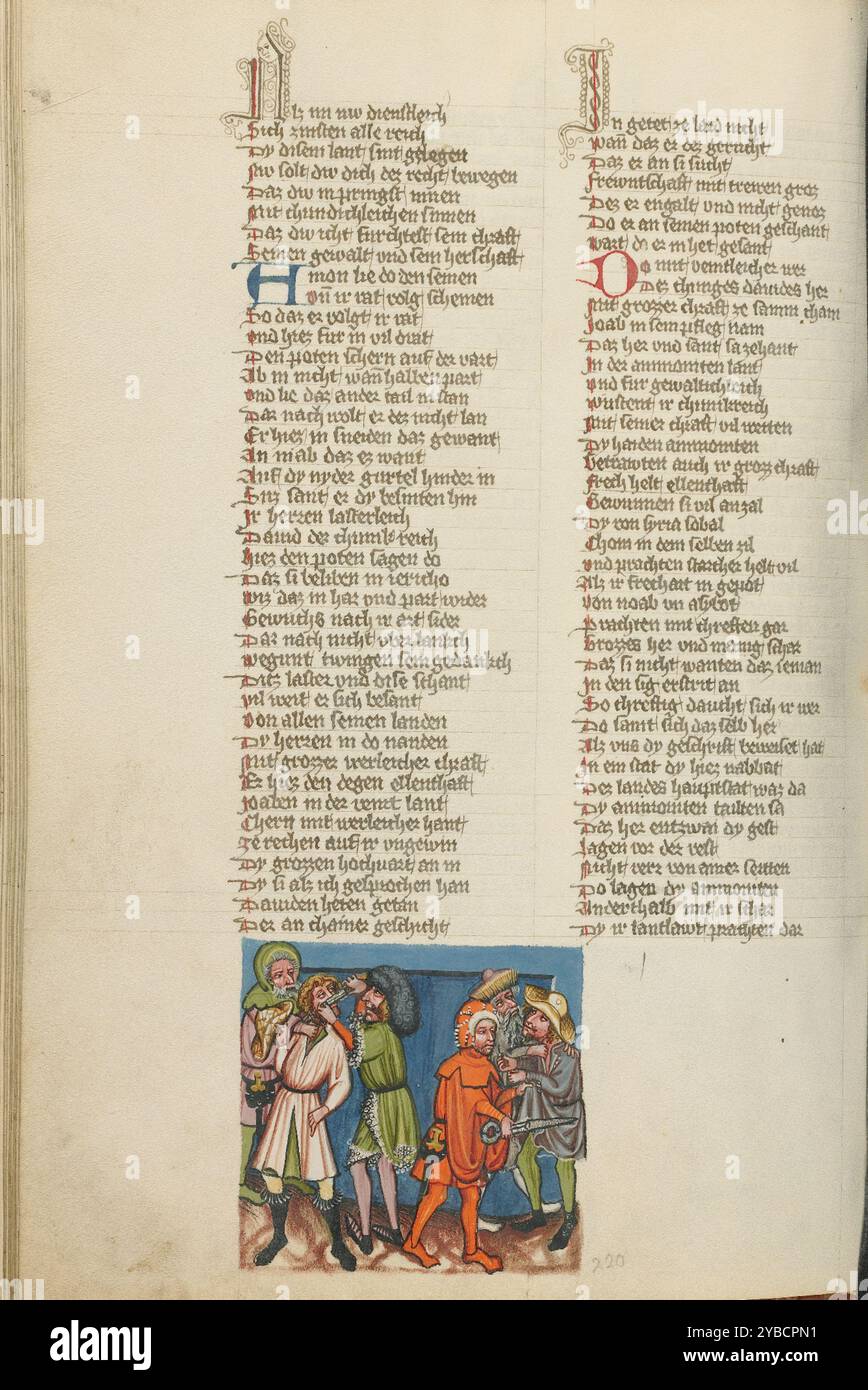 Alz im nw dienstleich
Sich zinsten alle reich
Dy disem lant sint gelegen
Nw solt dw dich dez recht bewegen
Daz dw in pringst innen
Mit chundichleichen sinnen
Daz dw icht furchtest sein chraft
Seinen gewalt und sein herschaft
Amon lie do den seinen
Von ir rat volg scheinen
So daz er volgt ir rat
Und hiez fur in vil drat
Den poten schern auf der vart
Ab in nicht wan halben part
Und lie daz ander tail in stan
Dar nach wolt er dez nicht lan
Er hiez in sneiden daz gewant
In in ab daz ez want
Auf dy nyder gurtel hinder in
Suz sant er dy besniten hin
Ir herren lasterleich
Dauid der chunik reich
Hiez den poten sagen do
Daz si beliben in iericho
wiz daz in har und part wider
Gewuchs nach ir art sider
Dar nach nicht uber lankch
wegunt twingen sein gedankch
Ditz laster und dise schant
Vil weit er sich besant
Von allen seinen landen
Dy herren in do nanden
Mit grozzer werleicher chraft
Er hiez den degen ellenthaft
Joaben in der veint lant
Chern mit werleicher hant
Ze rechen auf ir ungewin
Dy grozzen hochvart an in
Dy si als ich gesprochen han
Dauiden heten getan
Der an chainer geschicht
In getet ze laid nicht
Wan daz er dez gerucht
Daz er an si sucht
Frewntschaft mit trewen groz
Dez er engalt und nicht genoz
Do er an seinen poten geschant
Wart do er in het gesant
Do mit veintleicher wer
Dez chuniges dauides her
Mit grozzer chraft ze samm cham
Joab in sein pfleg nam
Daz her und sant sa zehant
In der ammoniten lant
Und fur gewaltichleich
Wustent ir chunikreich
Mit seiner chraft vil weiten
Dy haiden ammoniten
Betrawten auch ir grozz chraft
Frech helt ellenthaft
Gewunnen si vil an zal
Dy von syria sobal
Chom in dem selben zil
Und prachten starcher helt vil
Alz ir frechait in gepot
Von moab un astot
Prachten mit chreften gar
Grozzes her und manig schar
Daz si nicht wanten daz ieman
In den sig erstrit an
So chreftig daucht sich ir wer
Do samt sich daz selb her
Alz uns dy geschrift beweiset hat
In ein stat dy hiez nabbat
Der landes hauptstat waz da
Dy ammoniten tailten sa
Daz her entzwai dy gest
Lagen vor der vest
Nicht verr von ainer seitten
Do lagen dy ammoniten
Anderthalb mit ir schar
Dy ir lantlawt prachten dar
220
a
alamy
Image ID: 2YBCPN1
www.alamy.com